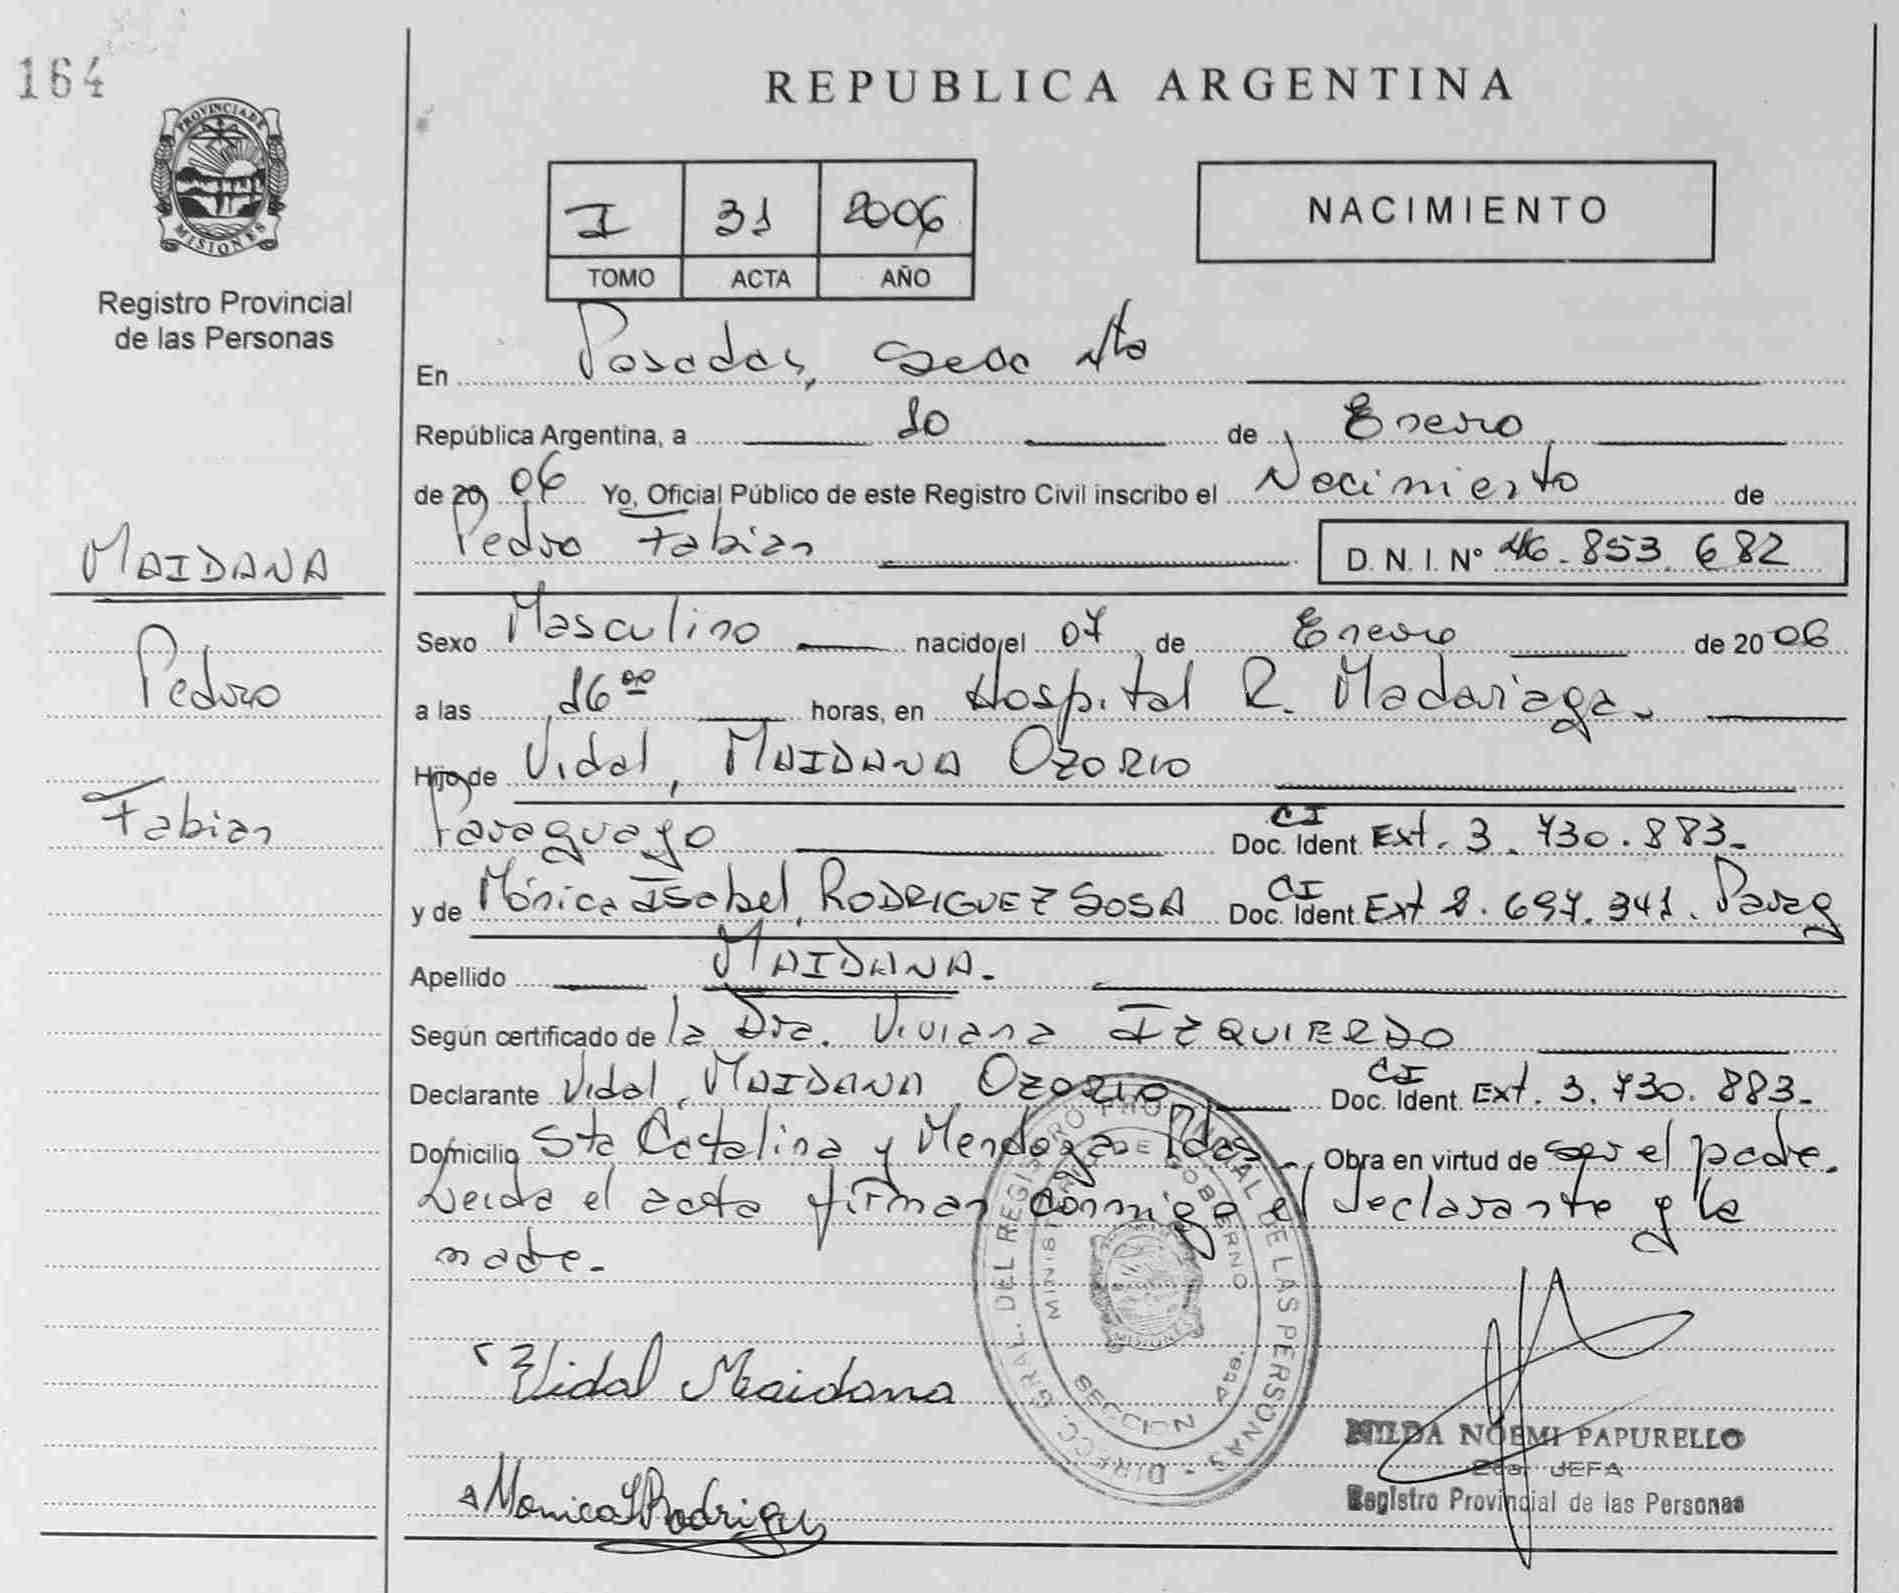 164
REPUBLICA ARGENTINA
PROVINCIA DE
MISIONES
Registro Provincial
de las Personas
I 31 2006
TOMO ACTA AÑO
NACIMIENTO
En Posadas,
República Argentina, a 10 de Enero
de 2006 Yo, Oficial Público de este Registro Civil inscribo el Nacimiento de
Pedro Fabian D. N. I. Nº 46.853.682
MAIDANA
Pedro
Fabian
Sexo Masculino nacido el 07 de Enero de 2006
a las 16 00 horas, en Hospital R. Madariaga.
Hijo de Vidal, MAIDANA OZORIO
Paraguayo CI Doc. Ident. Ext. 3.730.883-
y de Mónica Isabel, RODRIGUEZ SOSA CI Doc. Ident. Ext 2.697.341. Parag
Apellido MAIDANA.
Según certificado de la Dra. Viviana IZQUIERDO
Declarante Vidal, MAIDANA OZORIO CI Doc. Ident. Ext. 3.730.883-
Domicilio Sta Catalina y Mendoza Pdas., Obra en virtud de ser el padre.
Leida el acta firman conmigo el declarante y la
madre.
DIRECC. GRAL. DEL REGISTRO PROVINCIAL DE LAS PERSONAS -
MINISTERIO DE GOBERNO
MISIONES
SECCION
Vidal Maidana
Monica I Rodriguez
NOEMI PAPURELLO
JEFA
Registro Provincial de las Personas